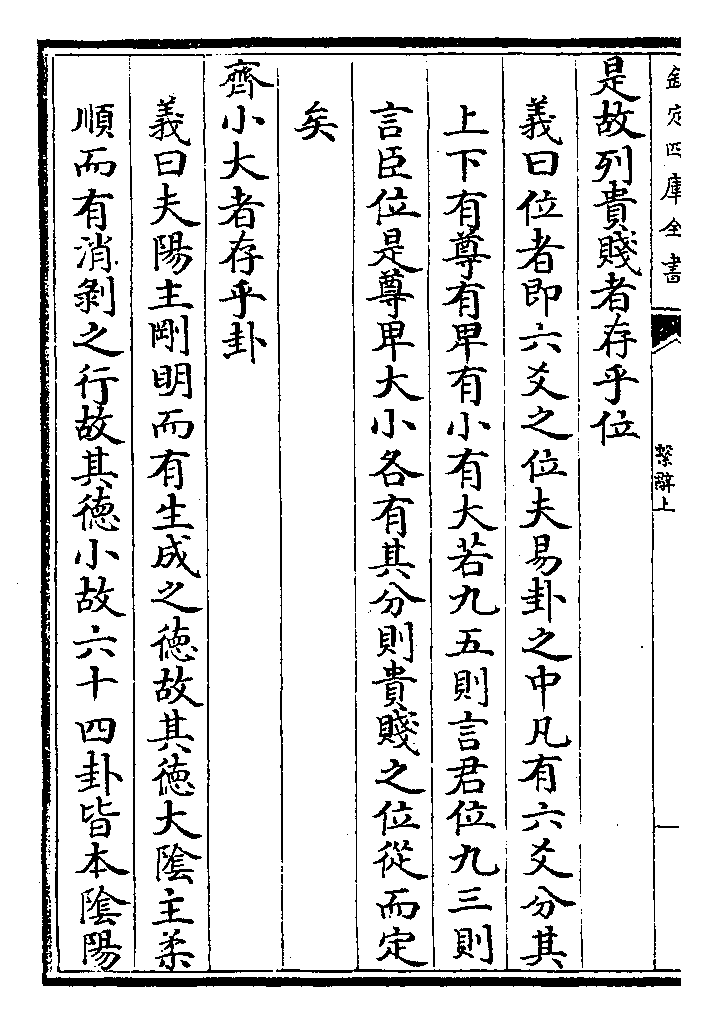 欽定四庫全書
繫辭上
是故列貴賤者存乎位
義曰位者即六爻之位夫易卦之中凡有六爻分其
上下有尊有卑有小有大若九五則言君位九三則
言臣位是尊卑大小各有其分則貴賤之位從而定
矣
齊小大者存乎卦
義曰夫陽主剛明而有生成之徳故其徳大隂主柔
順而有消剝之行故其徳小故六十四卦皆本隂陽